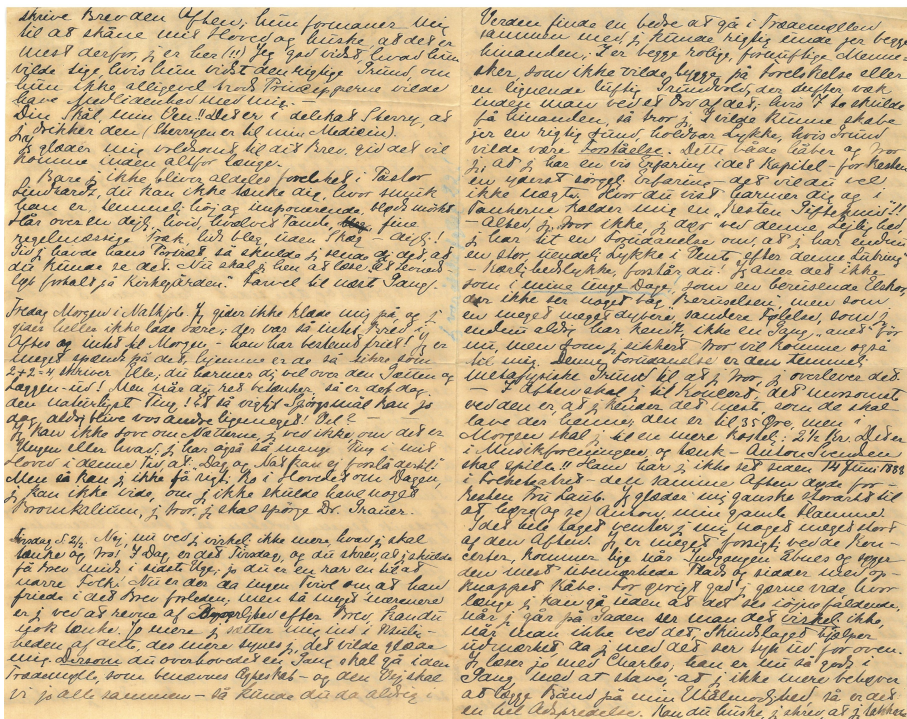 skrive Brev den Aften; hun formaner mig
til at skåne mit Hoved og huske, at det er
mest derfor, j. er her (!!) Jeg gad vidst, hvad hun
vilde sige, hvis hun vidst den rigtige Grund, om
hun ikke alligevel trods Principperne vilde
have Medlidenhed med mig. —
Din Skål, min Ven!! Det er i delikat Sherry, at
j. drikker den (Sherryen er til min Medicin).
J. glæder mig voldsomt til dit Brev, gid det vil
komme inden altfor længe.
Bare j. ikke bliver aldeles forelsket i Pastor
Lindhardt, du kan ikke tænke dig, hvor smuk
han er, temmelig høj og imponerende, meget mørkt
Hår over en dejlig, hvid, hvælvet Pande, fine
regelmæssige Træk, lidt bleg, uden Skæg — dejlig!
Vid j. havde hans Portræt så skulde j. sende dig det, at
du kunde se det. Nu skal j. hen at læse, et
lagt forhalt på Kirkegården. Farvel til næste Gang.
Fredag Morgen i Natkjole. J. gider ikke klæde mig på og j.
gider heller ikke lade være; der var så intet Brev i
Aftes og intet til Morgen — han har bestemt friet! J. er
meget spændt på det, hjemme er de så sikre som
2+2=4 skriver Elle; du harmes dig vel over den Gætten og
Læggen-ud! Men når du ret betænker, så er det dog
den naturligste Ting! Et så vigtigt Spørgsmål kan jo
da aldrig blive vos andre ligemeget! Vel? —
J. kan ikke sove om Nætterne, j. ved ikke, om det er
Ungen eller hvad, j. har også så mange Ting i mit
Hoved i denne Tid, at Dag og Nat kan ej forslå dertil!
Men så kan j. ikke få rigtig Ro i Hovedet om Dagen,
j. kan ikke vide, om j. ikke skulde have noget
Bromkalium, j. tror, j. skal spørge Dr. Trauer.
Tirsdag d 2/2. Nej, nu ved j. virkel. ikke mere, hvad j. skal
tænke og tro! I Dag er det Tirsdag, og du skrev, at j. skulde
få Brev midt i sidste Uge; jo du er en rar en til at
narre Folk! Nu er der da ingen Tvivl om at han
friede i det Brev forleden, men så meget nærmere
er j. ved at revne af efter Brev, kan du
nok tænke. Jo mere j. sætter mig ind i Mulig-
heden af dette, des mere synes j., det vilde glæde
mig. Dersom du overhovedet en Gang skal gå i den
Trædemølle, som benævnes Ægteskab — og den Vej skal
vi jo alle sammen — så kunde du da aldrig i
Verden finde en bedre at gå i Trædemøllen
sammen med, j. kunde rigtig unde jer begge
hinanden. I er begge rolige, fornuftige Menne-
sker, som ikke vilde bygge på Forelskelse eller
en lignende luftig Grundvold, der dufter væk
inden man ved et Ord af det; hvis I to skulde
få hinanden, så tror j. I vilde kunne skabe
jer en rigtig sund, holdbar Lykke, hvis Grund
vilde være Forståelse. Dette både håber og tror
j., at j. har en vis Erfaring i det Kapitel — for Resten
en yderst sørgel. Erfaring — det vil du vel
ikke nægte. Hvor du vist harmer dig og i
Tankerne kalder mig en "Kirsten Giftekniv"!!
— Altså, j. tror ikke, j. dør ved denne Lejlighed,
j. har tit en Forudanelse om, at j. har endnu
en stor, uendelig Lykke i Vente efter denne Tuning
— Kærlighedslykke, forstår du! J. aner det ikke
som i mine unge Dage, som en berusende Elskov,
der ikke ser noget bag Beruselsen, men som
en meget meget dybere, sandere Følelse, som j.
endnu aldrig har kendt, ikke en Gang, anet før
nu, men som j. sikkert tror vil komme også
til mig. Denne Forudanelse er den temmel.
metafysiske Grund til at j. tror j. overlever det.
— I Aften skal j. til Koncert, det morsomste
ved den er, at j. kender det meste, som de skal
lave der henne; den er til 35 Øre, men i
Morgen skal j. til en mere kostel. i 2½ Kr. Det er
i Musikforeningen og tænk — Anton Svendsen
skal spille!! Ham har j. ikke set siden 14 Juni 1888
i Folketeatret — den samme Aften døde for-
resten Fru Laub. J. glæder mig ganske storartet til
at høre (og se) Anton, min gamle Flamme!
I det hele taget venter j. mig noget meget stort
af den Aften. J. er meget forsigtig ved de Kon-
certer, kommer lige når Indgangen åbnes og søger
den mest ubemærkede Plads og sidder med op-
knappet Kåbe. For øvrigt gad j. gerne vide, hvor
længe j. kan gå uden at det ses iøjnefaldende,
når j. går på Gaden ser man det virkel. ikke,
når man ikke ved det, Skindslaget hjælper
udmærket da j. med det ser tyk ud for oven.
J. læser jo med Charles; han er nu så godt i
Gang med at stave, at j. ikke mere behøver
at lægge Bånd på min Utålmodighed, så er det
en hel Adspredelse. Kan du huske, j. skrev, at j.